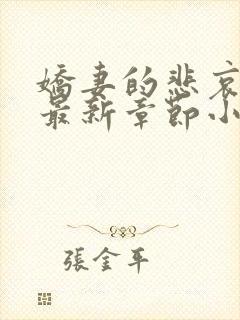 嬌妻的悲哀
最新章節小
張金平